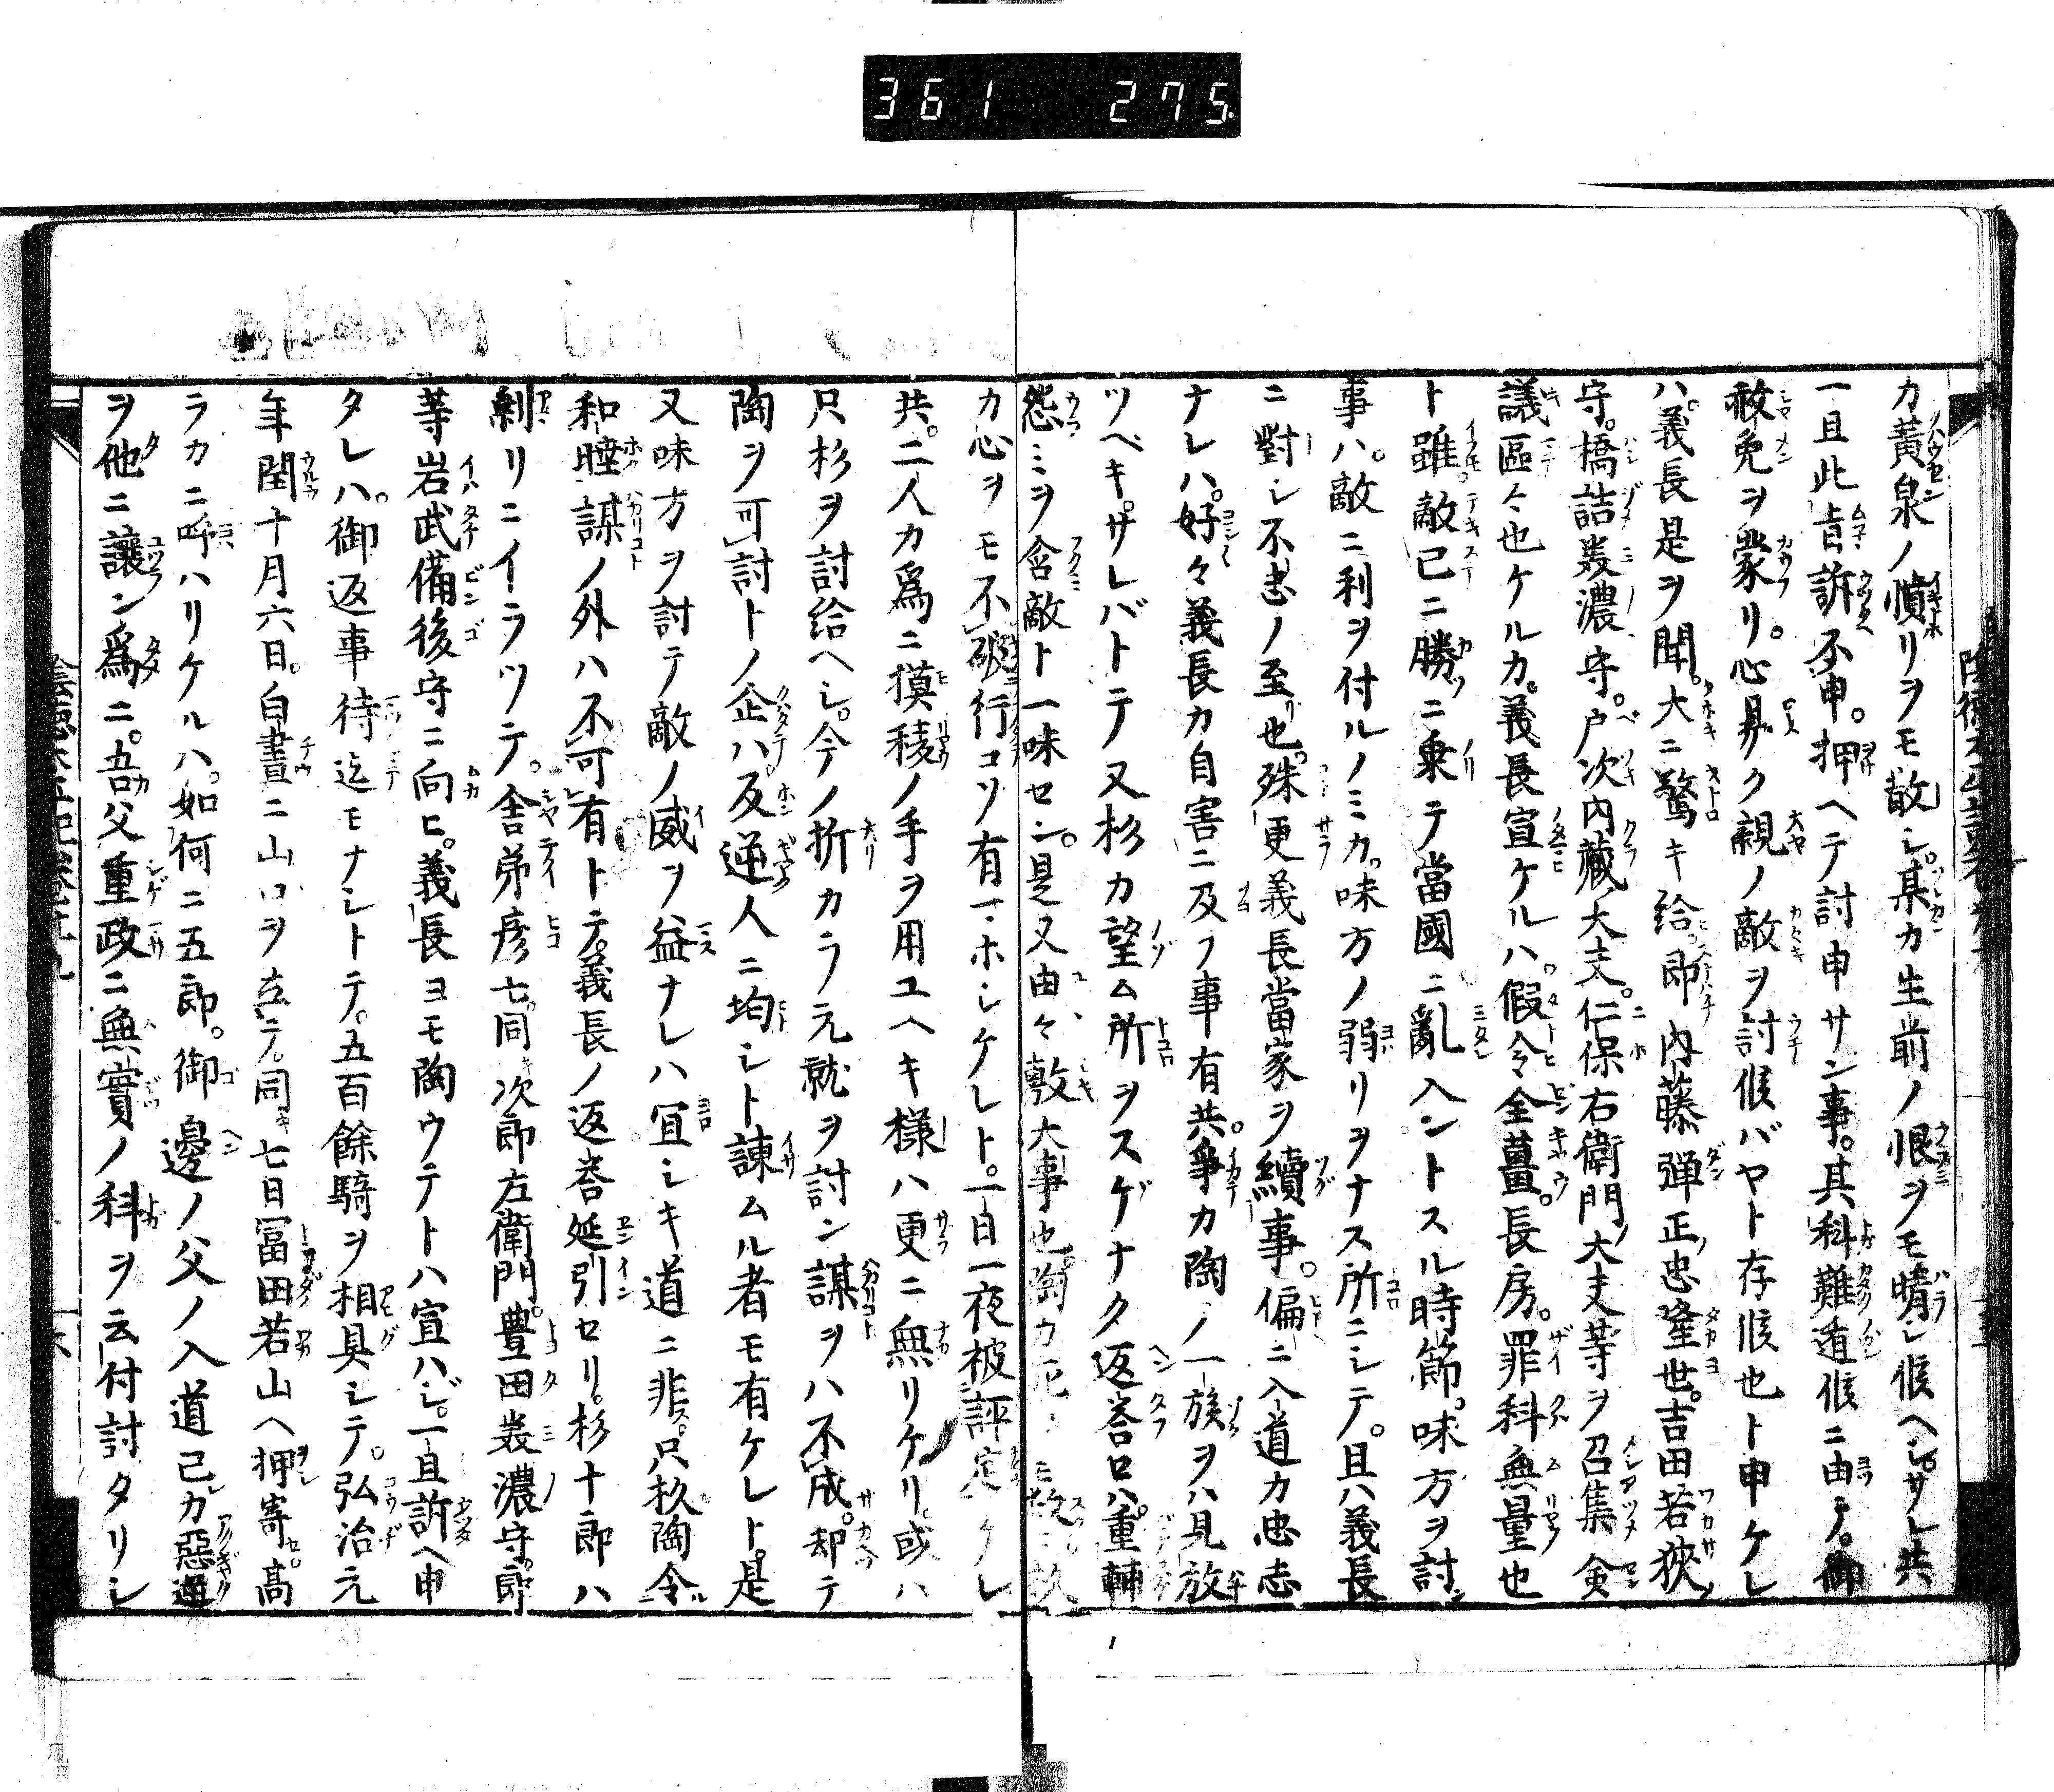 361 275
カ黄泉ノ憤リヲモ散シ某カ生前ノ恨ヲモ晴シ候ヘシサレ共
一旦此旨訴不申。押ヘテ討申サン事。其科難遁候ニ由テ。御
赦免ヲ蒙リ。心易ク親ノ敵ヲ討候バヤト存候也ト申ケレ
ハ。義長是ヲ聞。大ニ驚キ給即内藤弾正忠隆世。吉田若狭
守。橋詰美濃守。戸次内蔵大夫。仁保右衛門大夫等ヲ召集僉
議區々也ケルカ。義長宣ケルハ。假令全薑。長房。罪科無量也
ト雖。敵已ニ勝ツニ乗テ當國ニ亂入ントスル時節。味方ヲ討
事ハ。敵ニ利ヲ付ルノミカ。味方ノ弱リヲナス所ニシテ。且ハ義長
ニ對シ不忠ノ至リ也。殊更義長當家ヲ續事。偏ニ入道カ忠志
ナレハ。好々義長カ自害ニ及フ事有共。爭カ陶ノ一族ヲハ見放
ツベキ。サレバトテ又杉カ望ム所ヲスゲナク返荅ロハ。重輔
怨ミヲ含敵ト一味セン。是又由々敷大事也。陶カ
カ心ヲモ不破行コソ有ホシケレト。一日一夜被評定ケレ
共。二人カ爲ニ摸稜ノ手ヲ用ユヘキ様ハ更ニ無リケリ。或ハ
只杉ヲ討給ヘシ。今ノ折カラ元就ヲ討ン謀ヲハ不成。却テ
陶ヲ可討トノ企ハ。反逆人ニ均シト諫ムル者モ有ケレト。是
又味方ヲ討テ敵ノ威ヲ益ナレハ宜シキ道ニ非ス。只杦陶令
和睦謀ノ外ハ不可有トテ。義長ノ返荅延引セリ。杉十郎ハ
剰リニイラツテ。舎弟彦七。同次郎左衛門。豊田美濃守。郎
等岩武備後守ニ向ヒ。義長ヨモ陶ウテトハ宣ハジ。一旦訴ヘ申
タレハ。御返事待迄モナシトテ。五百餘騎ヲ相具シテ。弘治元
年閏十月六日。白晝ニ山口ヲ立テ。同キ七日冨田若山ヘ押寄。髙
ラカニ呼ハリケルハ。如何ニ五郎。御邊ノ父ノ入道己レカ惡逆
ヲ他ニ讓ン爲ニ。吾父重政ニ無實ノ科ヲ云付討タリシ